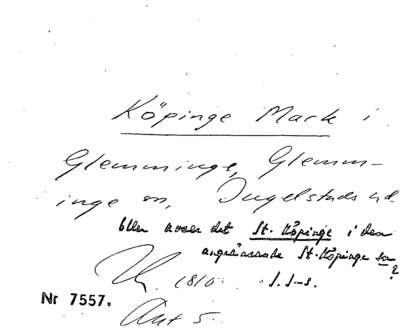 Köpinge Mark i
Glemminge, Glemm-
inge sn, Ingelstads hd.
Eller avser det St. Köpinge i den
angränsande St. Köpinge sn?
1810. S. S-s.
Nr 7557.
Akt 5.